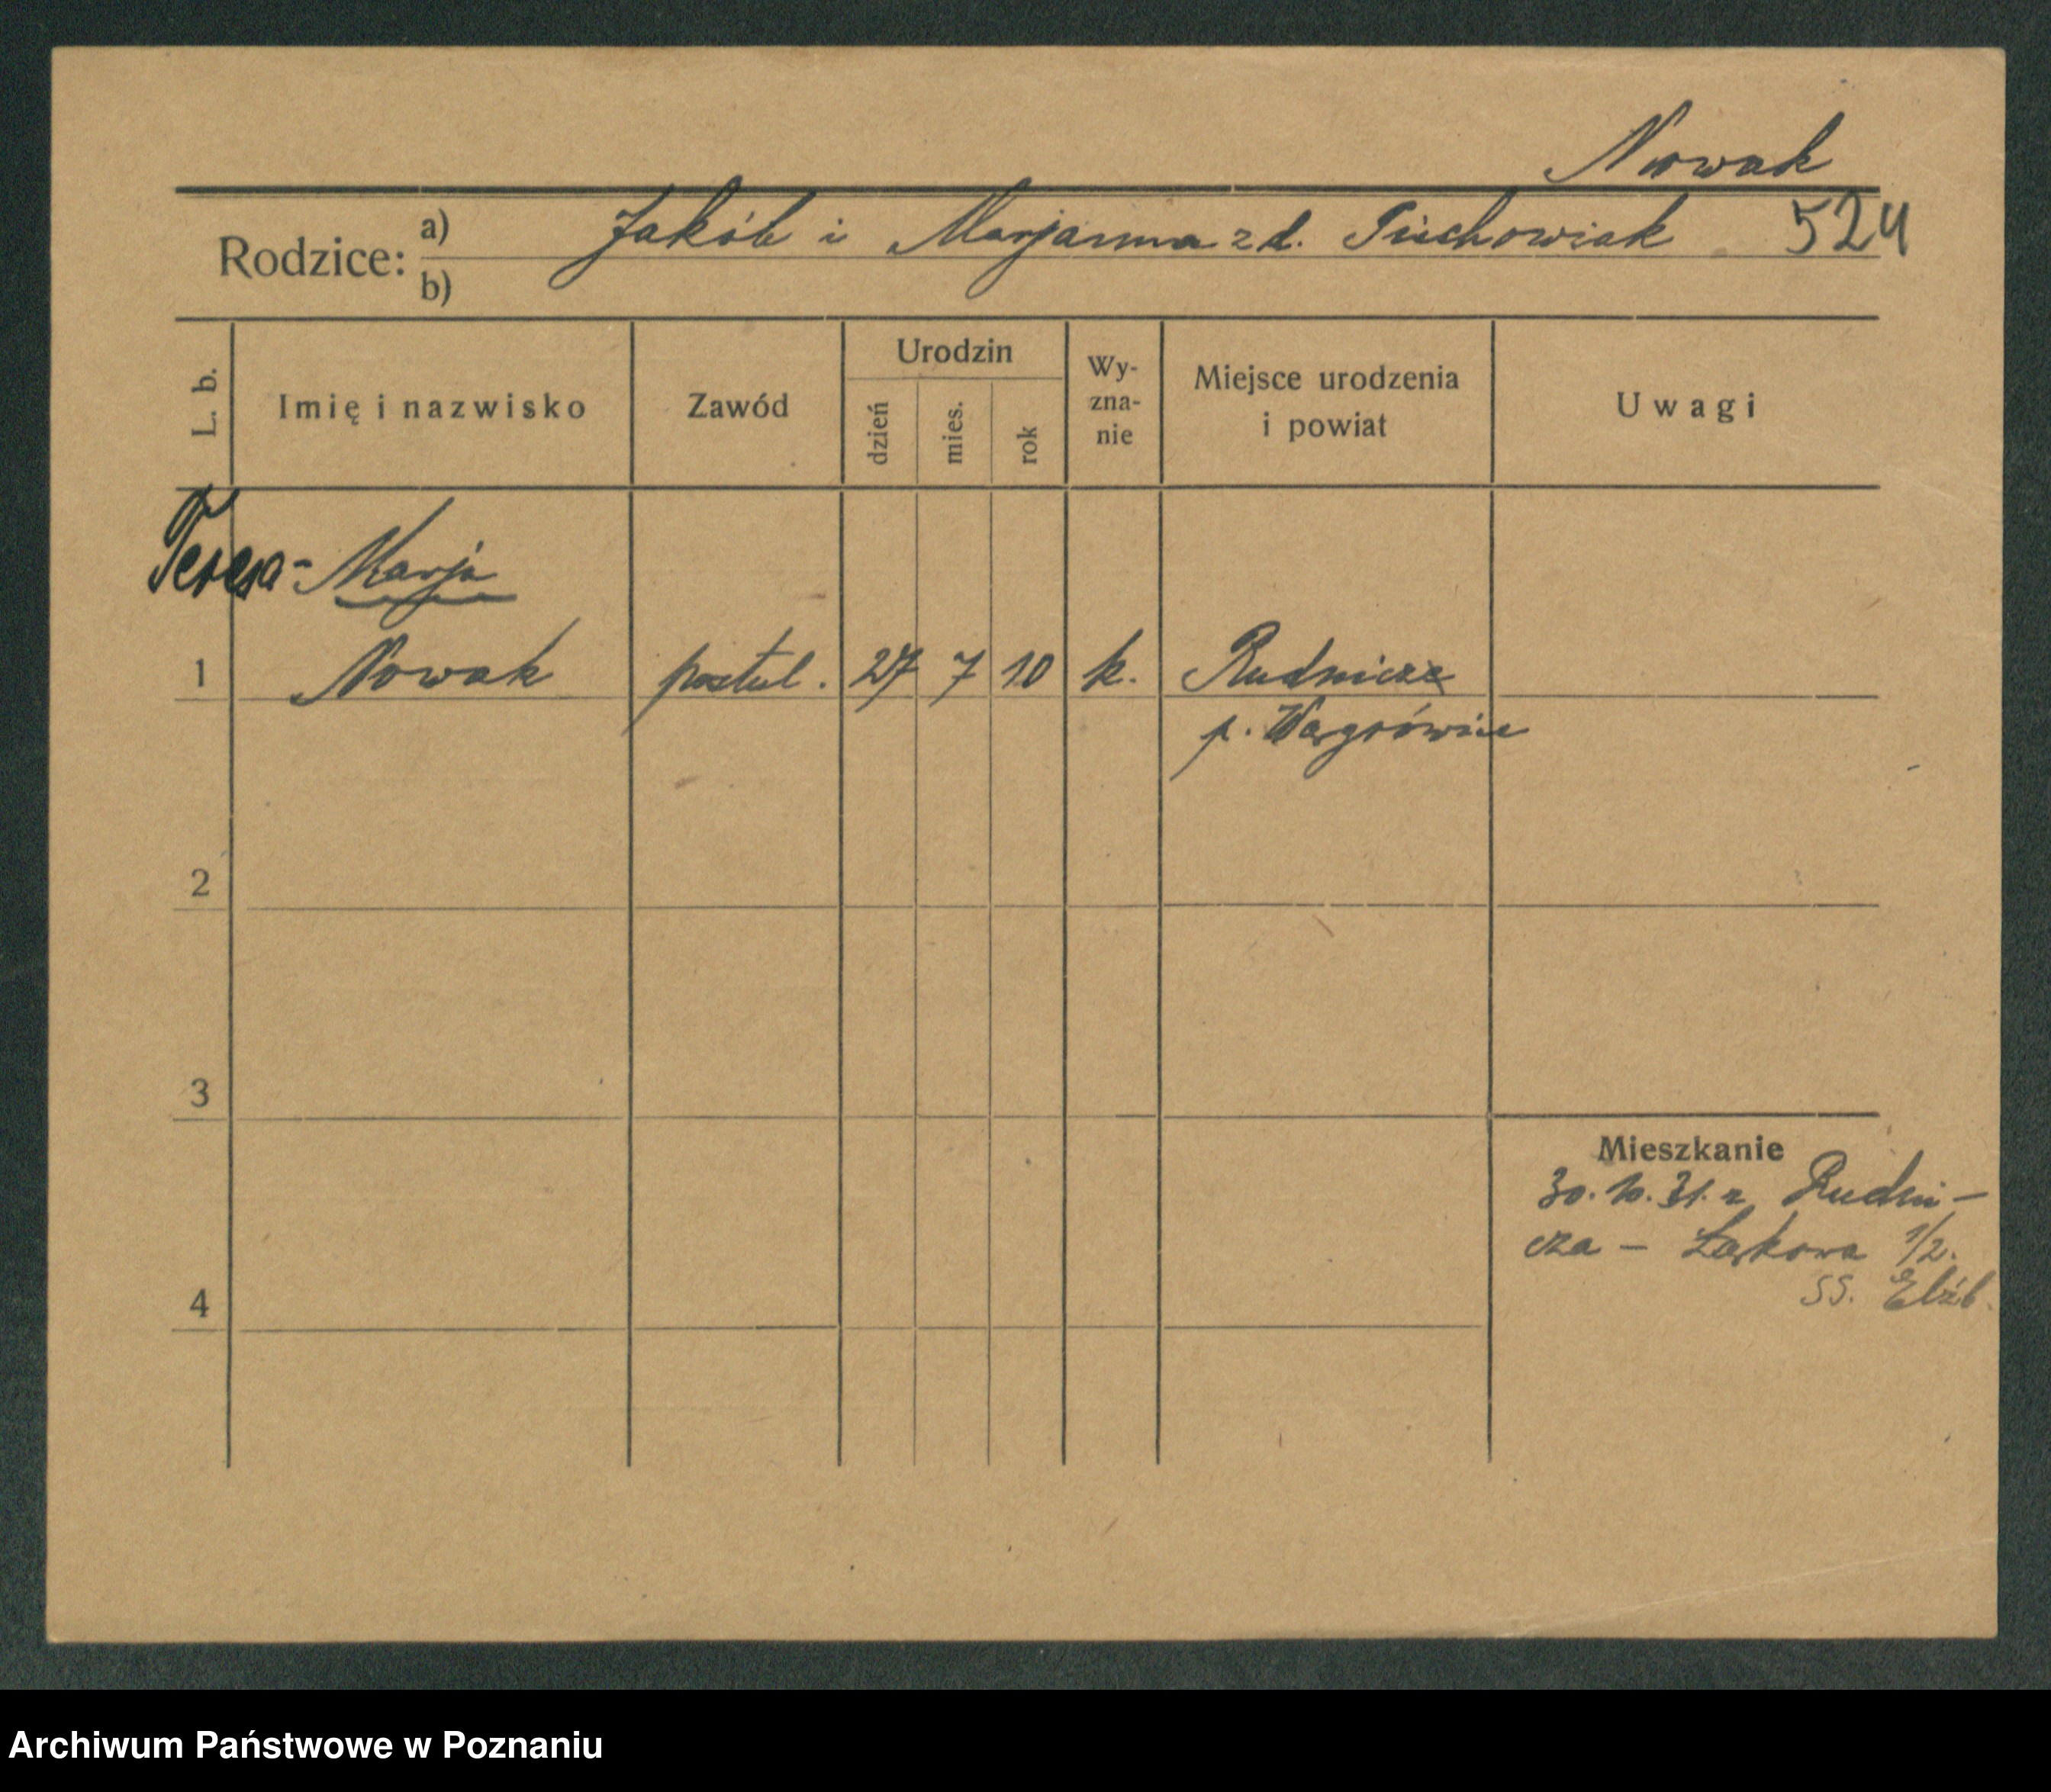 Nowak
Rodzice: a) Jakób i Marjanna z d. 524
b)
L. b. Imię i nazwisko Zawód Urodzin dzień mies. rok Wy-zna-nie Miejsce urodzenia i powiat Uwagi
Teresa - Marja
1 Nowak postul. 27 7 10 k. Rudnicze
p. Wągrówiec
2
3
Mieszkanie
30.10.31. z Rudni-
cza - Łąkowa 1/2.
SS. Elżb.
4
Archiwum Państwowe w Poznaniu